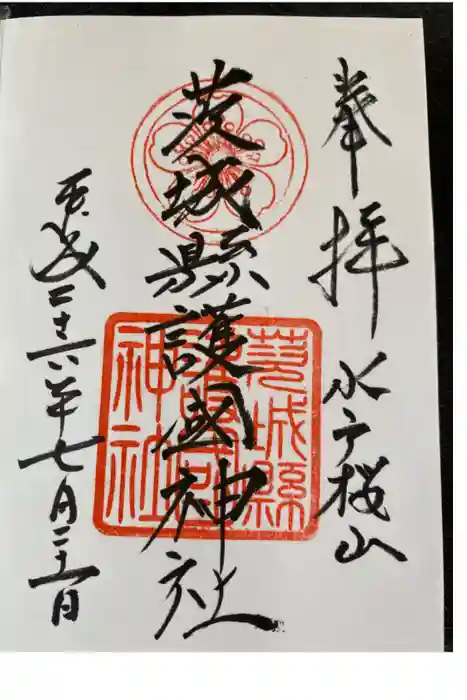 奉拝 水戸桜山
茨城縣護國神社
茨城縣
護國
神社
平成二十六年七月二十一日